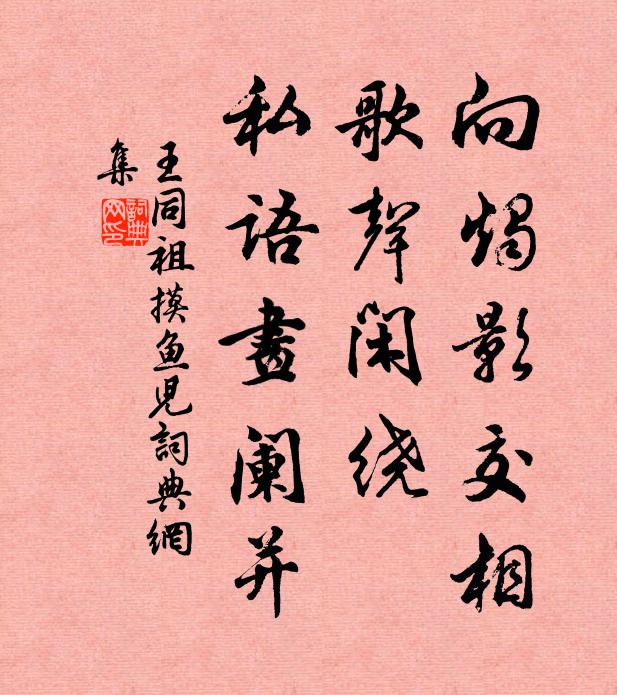 向烛影交相
歌声闲绕
私语画阑并
王同祖摸鱼儿詞典網
集
詞典
网印